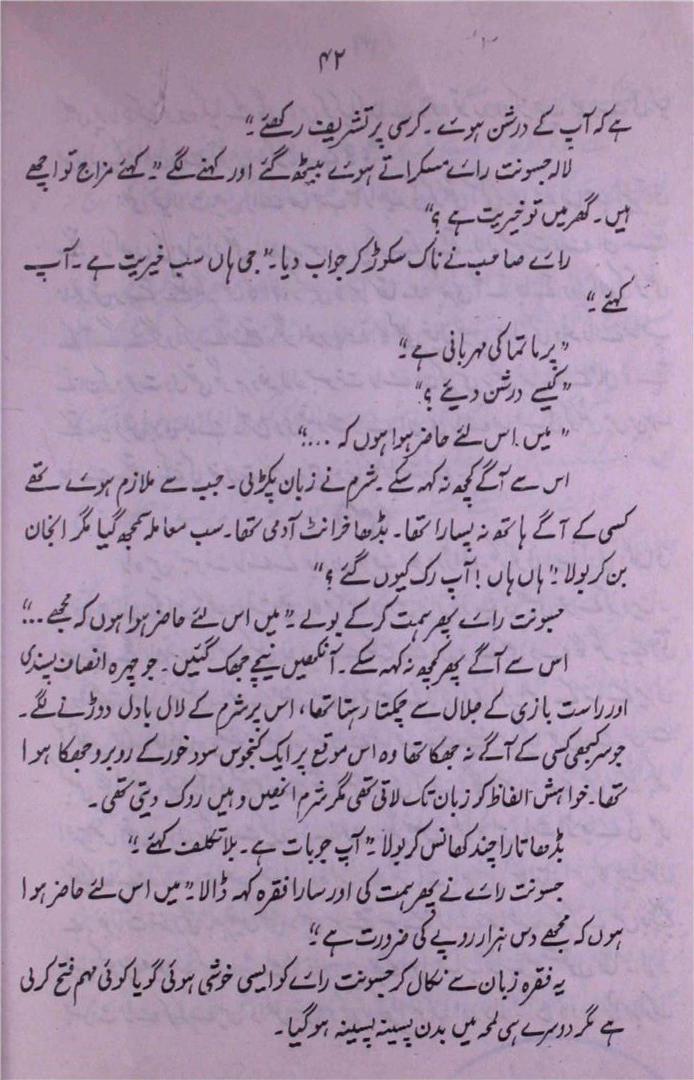 ۴۲
ہے کہ آپ کے درشن ہوئے۔ کرسی پر تشریف رکھئے۔“
لالہ جسونت رائے مسکراتے ہوئے بیٹھ گئے اور کہنے لگے ”کہئے مزاج تو اچھے
ہیں۔ گھر میں تو خیریت ہے؟“
رائے صاحب نے ناک سکوڑ کر جواب دیا۔ ”جی ہاں سب خیریت ہے۔ آپ
کہئے۔“
”پرماتما کی مہربانی ہے۔“
”کیسے درشن دیئے؟“
”میں اس لئے حاضر ہوا ہوں کہ ...؟“
اس سے آگے کچھ نہ کہہ سکے۔ شرم نے زبان پکڑ لی۔ جب سے ملازم ہوئے تھے
کسی کے آگے ہاتھ نہ پسارا تھا۔ بڈھا خرانٹ آدمی تھا۔ سب معاملہ سمجھ گیا مگر انجان
بن کر بولا۔ ”ہاں ہاں! آپ رک کیوں گئے؟“
جسونت رائے پھر ہمت کر کے بولے۔ ”میں اس لئے حاضر ہوا ہوں کہ مجھے ...“
اس سے آگے پھر کچھ نہ کہہ سکے۔ آنکھیں نیچے جھک گئیں۔ جو چہرہ انصاف پسندی
اور راست بازی کے جلال سے چمکتا رہتا تھا، اس پر شرم کے لال بادل دوڑنے لگے۔
جو سر کبھی کسی کے آگے نہ جھکا تھا وہ اس موقع پر ایک کنجوس سود خور کے روبرو جھکا ہوا
تھا۔ خواہش الفاظ کو زبان تک لاتی تھی مگر شرم انھیں وہیں روک دیتی تھی۔
بڈھا تارا چند کھانس کر بولا ”آپ جو بات ہے۔ بلا تکلف کہئے۔“
جسونت رائے نے پھر ہمت کی اور سارا فقرہ کہہ ڈالا۔ ”میں اس لئے حاضر ہوا
ہوں کہ مجھے دس ہزار روپے کی ضرورت ہے۔“
یہ فقرہ زبان سے نکال کر جسونت رائے کو ایسی خوشی ہوئی گویا کوئی مہم فتح کر لی
ہے مگر دوسرے ہی لمحہ میں بدن پسینہ پسینہ ہو گیا۔